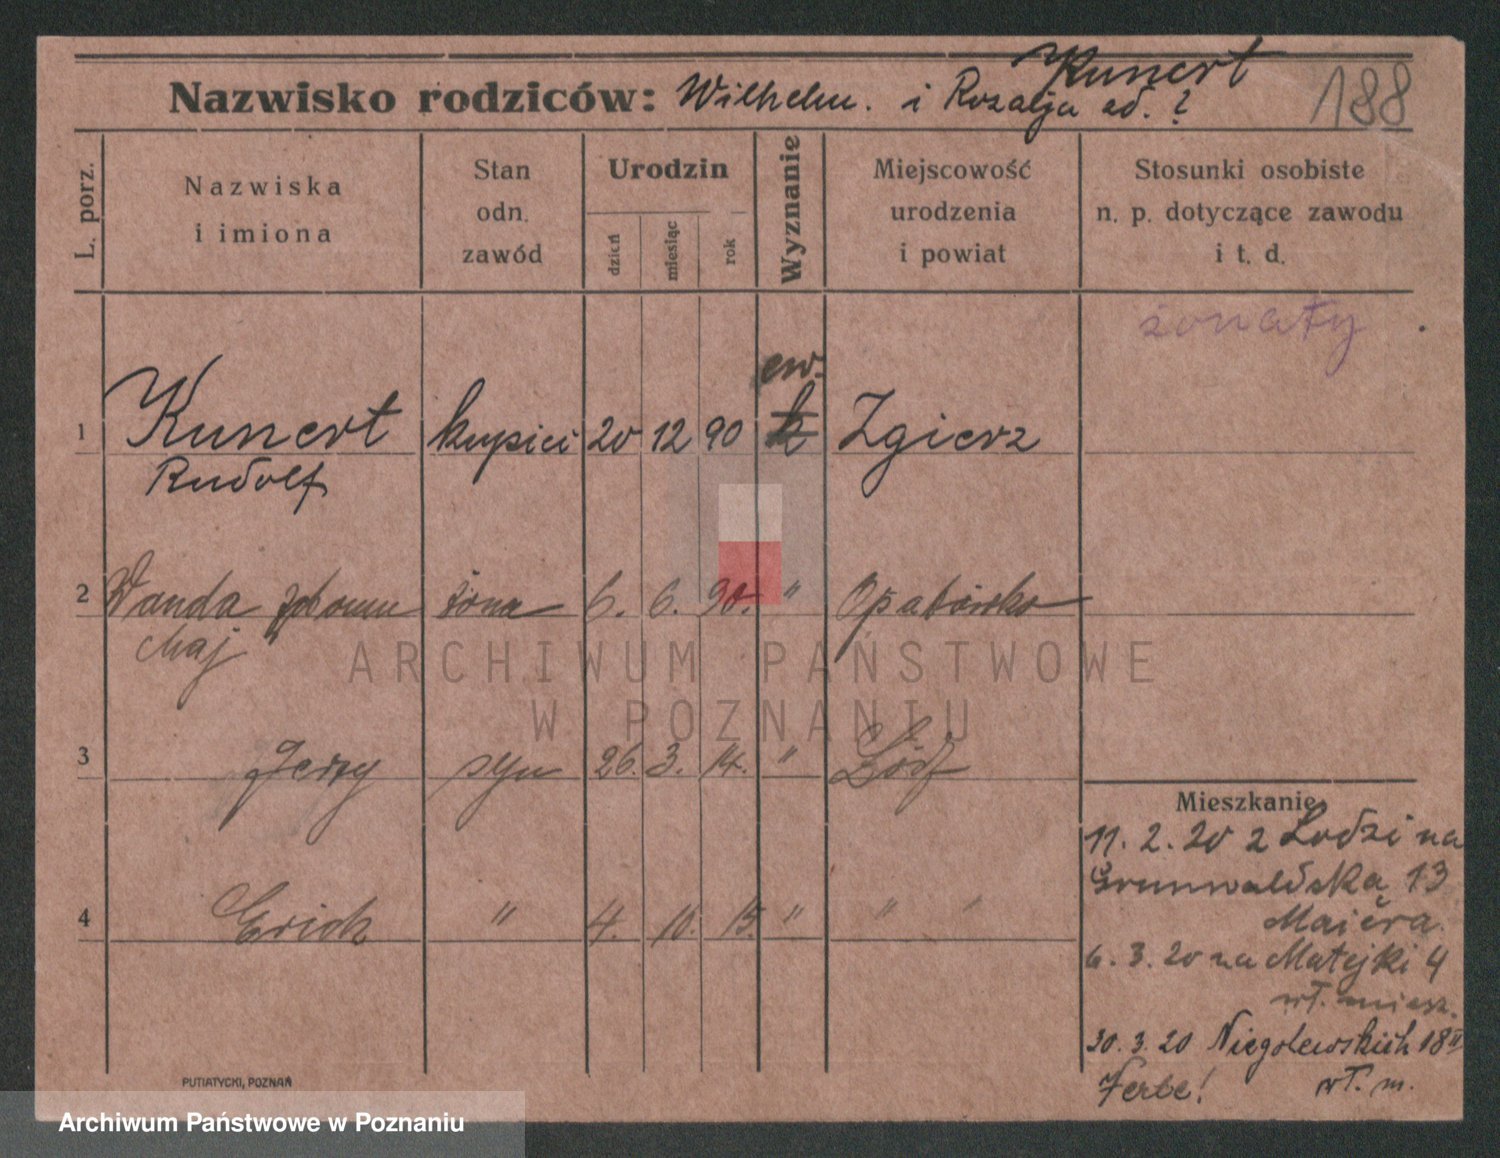 Kunert
Nazwisko rodziców: Wilhelm. i Rozalja ad. ?
188
L. porz.
Nazwiska
i imiona
Stan
odn.
zawód
Urodzin
dzień
miesiąc
rok
Wyznanie
Miejscowość
urodzenia
i powiat
Stosunki osobiste
n. p. dotyczące zawodu
i t. d.
żonaty
ew.
1 Kunert kupiec 20 12 90 k Zgierz
Rudolf
2 Wanda żona 6. 6. 90. "
3 Jerzy syn 26. 3. 14. " Łódź
4 Erich " 4. 10. 15. " " "
Mieszkanie
11. 2. 20 z Lodzi na
Grunwaldską 13
6. 3. 20 na Matejki 4
wł. miesz.
30. 3. 20 Niegolewskich 18 II
wł. m.
PUTIATYCKI, POZNAŃ
ARCHIWUM PAŃSTWOWE
W POZNANIU
Archiwum Państwowe w Poznaniu